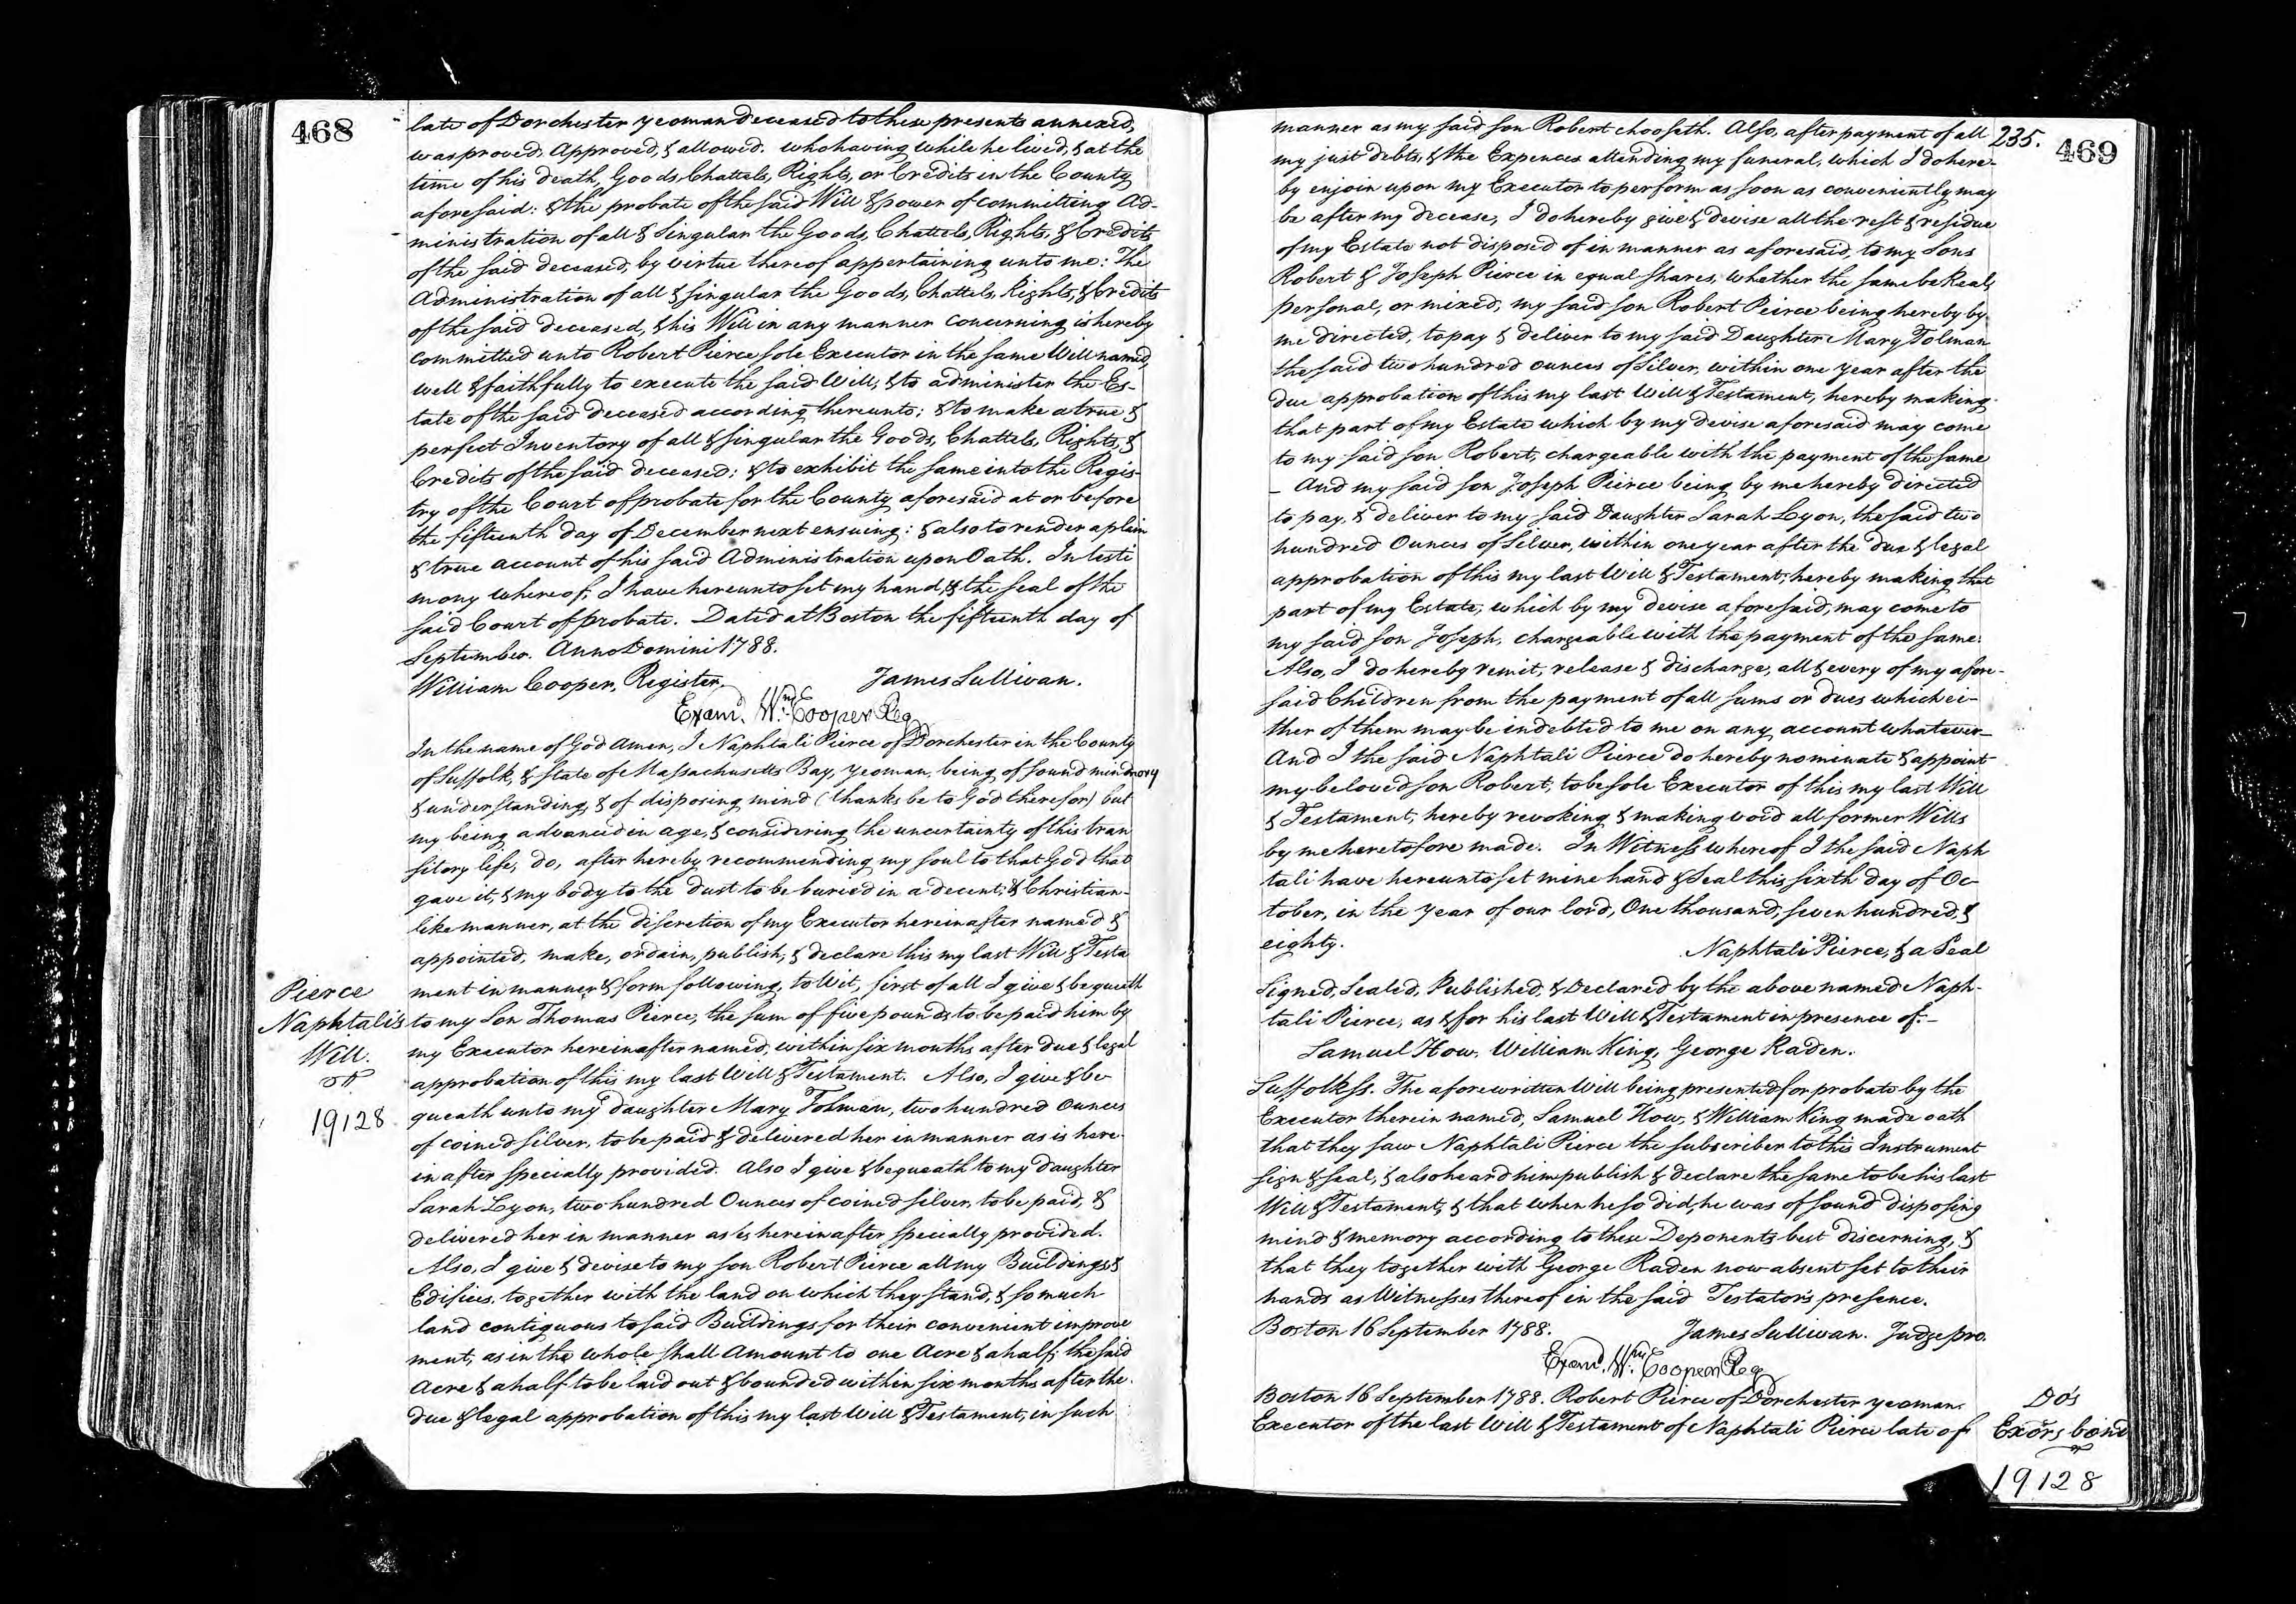 468
late of Dorchester yeoman deceased to these presents annexed,
was proved, Approved, & allowed. who having while he lived, & at the
time of his death, Goods, Chattels, Rights, or Credits in the County
aforesaid: & the probate of the said Will & power of committing Ad-
ministration of all & Singular the Goods, Chattels, Rights, & Credits
of the said deceased, by virtue thereof appertaining unto me: The
Administration of all & singular the Goods, Chattels, Rights, & Credits
of the said deceased, & his Will in any manner concerning is hereby
committed unto Robert Pierce sole Executor in the same Will named,
well & faithfully to execute the said Will; & to administer the Es-
tate of the said deceased according thereunto; & to make a true &
perfect Inventory of all & singular the Goods, Chattels, Rights, &
Credits of the said deceased; & to exhibit the same into the Regis-
try of the Court of probate for the County aforesaid at or before
the fifteenth day of December next ensuing: & also to render a plain
& true account of his said Administration upon Oath. In testi
mony whereof, I have hereunto set my hand, & the seal of the
said Court of probate. Dated at Boston the fifteenth day of
September. Anno Domini 1788.
William Cooper, Register. James Sullivan.
Exam'd. Wm. Cooper Reg
In the name of God Amen, I Naphtali Pierce of Dorchester in the County
of Suffolk, & State of Massachusetts Bay, yeoman, being of sound mind
& understanding, & of disposing mind (thanks be to God therefor) but
my being advanced in age, & considering the uncertainty of this tran
sitory life, do, after hereby recommending my soul to that God that
gave it, & my body to the dust to be buried in a decent, & Christian-
like manner, at the discretion of my Executor hereinafter named &
appointed, make, ordain, publish, & declare this my last Will & Testa
ment in manner & form following, to Wit, first of all I give & bequeath
Pierce
Naphtalis
Will.
19128
to my Son Thomas Pierce, the sum of five pounds to be paid him by
my Executor hereinafter named, within six months after due & legal
approbation of this my last Will & Testament. Also, I give & be
queath unto my daughter Mary Tolman, two hundred Ounces
of coined silver, to be paid & delivered her in manner as is here-
in after specially provided. Also I give & bequeath to my daughter
Sarah Lyon, two hundred Ounces of coined silver, to be paid, &
delivered her in manner as is hereinafter specially provided.
Also, I give & devise to my son Robert Pierce all my Buildings &
Edifices, together with the land on which they stand, & so much
land contiguous to said Buildings for their convenient improve
ment, as in the whole shall Amount to one Acre & a half; the said
Acre & a half to be laid out & bounded within six months after the
due & legal approbation of this my last Will & Testament, in such
235.
469
manner as my said son Robert chooseth. Also, after payment of all
my just debts, & the Expences attending my funeral, which I do here-
by enjoin upon my Executor to perform as soon as conveniently may
be after my decease, I do hereby give & devise all the rest & residue
of my Estate not disposed of in manner as aforesaid, to my Sons
Robert & Joseph Pierce in equal shares, whether the same be Real,
personal, or mixed, my said son Robert Peirce being hereby by
me directed, to pay & deliver to my said Daughter Mary Tolman
the said two hundred ounces of Silver, within one year after the
due approbation of this my last Will & Testament, hereby making
that part of my Estate which by my devise aforesaid may come
to my said son Robert, chargeable with the payment of the same
— And my said son Joseph Peirce being by me hereby directed
to pay, & deliver to my said Daughter Sarah Lyon, the said two
hundred Ounces of Silver, within one year after the due & legal
approbation of this my last Will & Testament; hereby making that
part of my Estate, which by my devise aforesaid, may come to
my said son Joseph, chargeable with the payment of the same.
Also, I do hereby remit, release & discharge, all & every of my afore-
said Children from the payment of all sums or dues which ei-
ther of them may be indebted to me on any account whatever—
And I the said Naphtali Pierce do hereby nominate & appoint
my beloved son Robert, to be sole Executor of this my last Will
& Testament, hereby revoking & making void all former Wills
by me heretofore made. In Witness whereof I the said Naph
tali have hereunto set mine hand & Seal this sixth day of Oc-
tober, in the year of our lord, One thousand, seven hundred, &
eighty. Naphtali Pierce, & a Seal
Signed, Sealed, Published, & Declared by the above named Naph-
tali Pierce, as & for his last Will & Testament in presence of:—
Samuel How, William King, George Raden.
Suffolk ss. The aforewritten Will being presented for probate by the
Executor therein named, Samuel How, & William King made oath
that they saw Naphtali Pierce the subscriber to this Instrument
sign & seal, & also heard him publish & declare the same to be his last
Will & Testament, & that when he so did, he was of sound disposing
mind & memory according to these Deponents best discerning, &
that they together with George Raden now absent set to their
hands as Witnesses thereof in the said Testator's presence.
Boston 16 September 1788. James Sullivan. Judge pro.
Exam'd. Wm. Cooper Reg
Boston 16 September 1788. Robert Pierce of Dorchester yeoman.
Executor of the last Will & Testament of Naphtali Pierce late of
Do's
Exors bond
19128